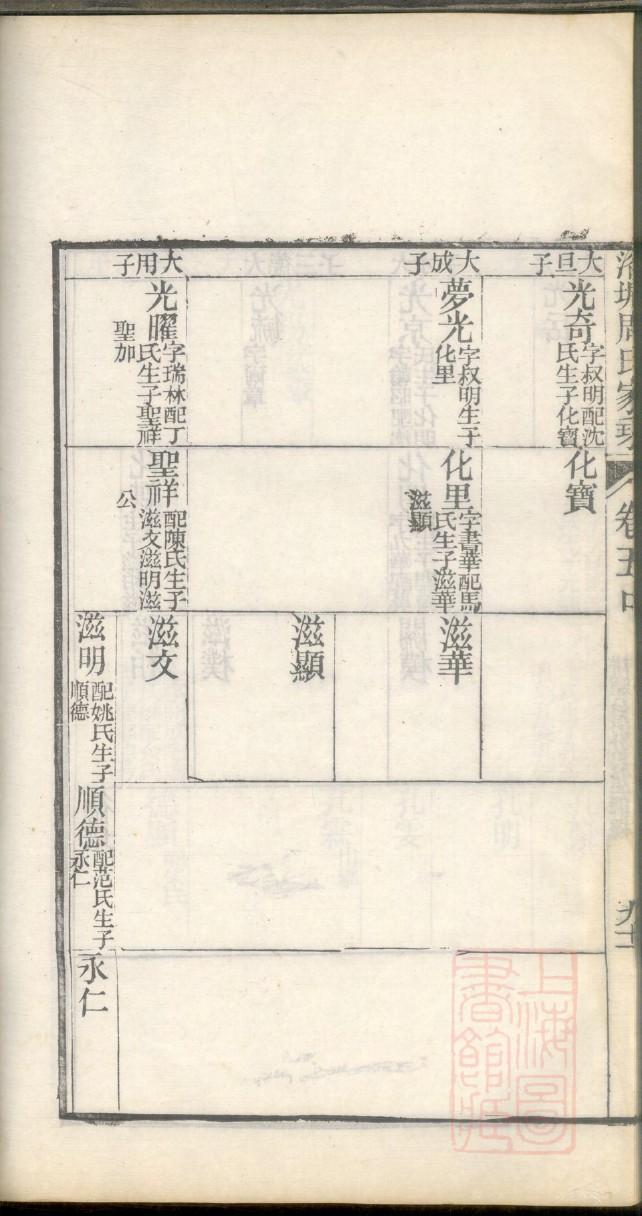 周氏家乘
卷五中
大旦子
光奇字叔明配沈
氏生子化寶
化寶
大成子
夢光字叔明生子
化里
化里字書華配馬
氏生子滋華
滋顯
滋華
滋顯
大用子
光曜字瑞林配丁
氏生子聖祥
聖加
聖祥配陳氏生子
滋文滋明滋
公
滋文
滋明配姚氏生子
順德
順德配范氏生子
永仁
永仁
上海圖
書館藏